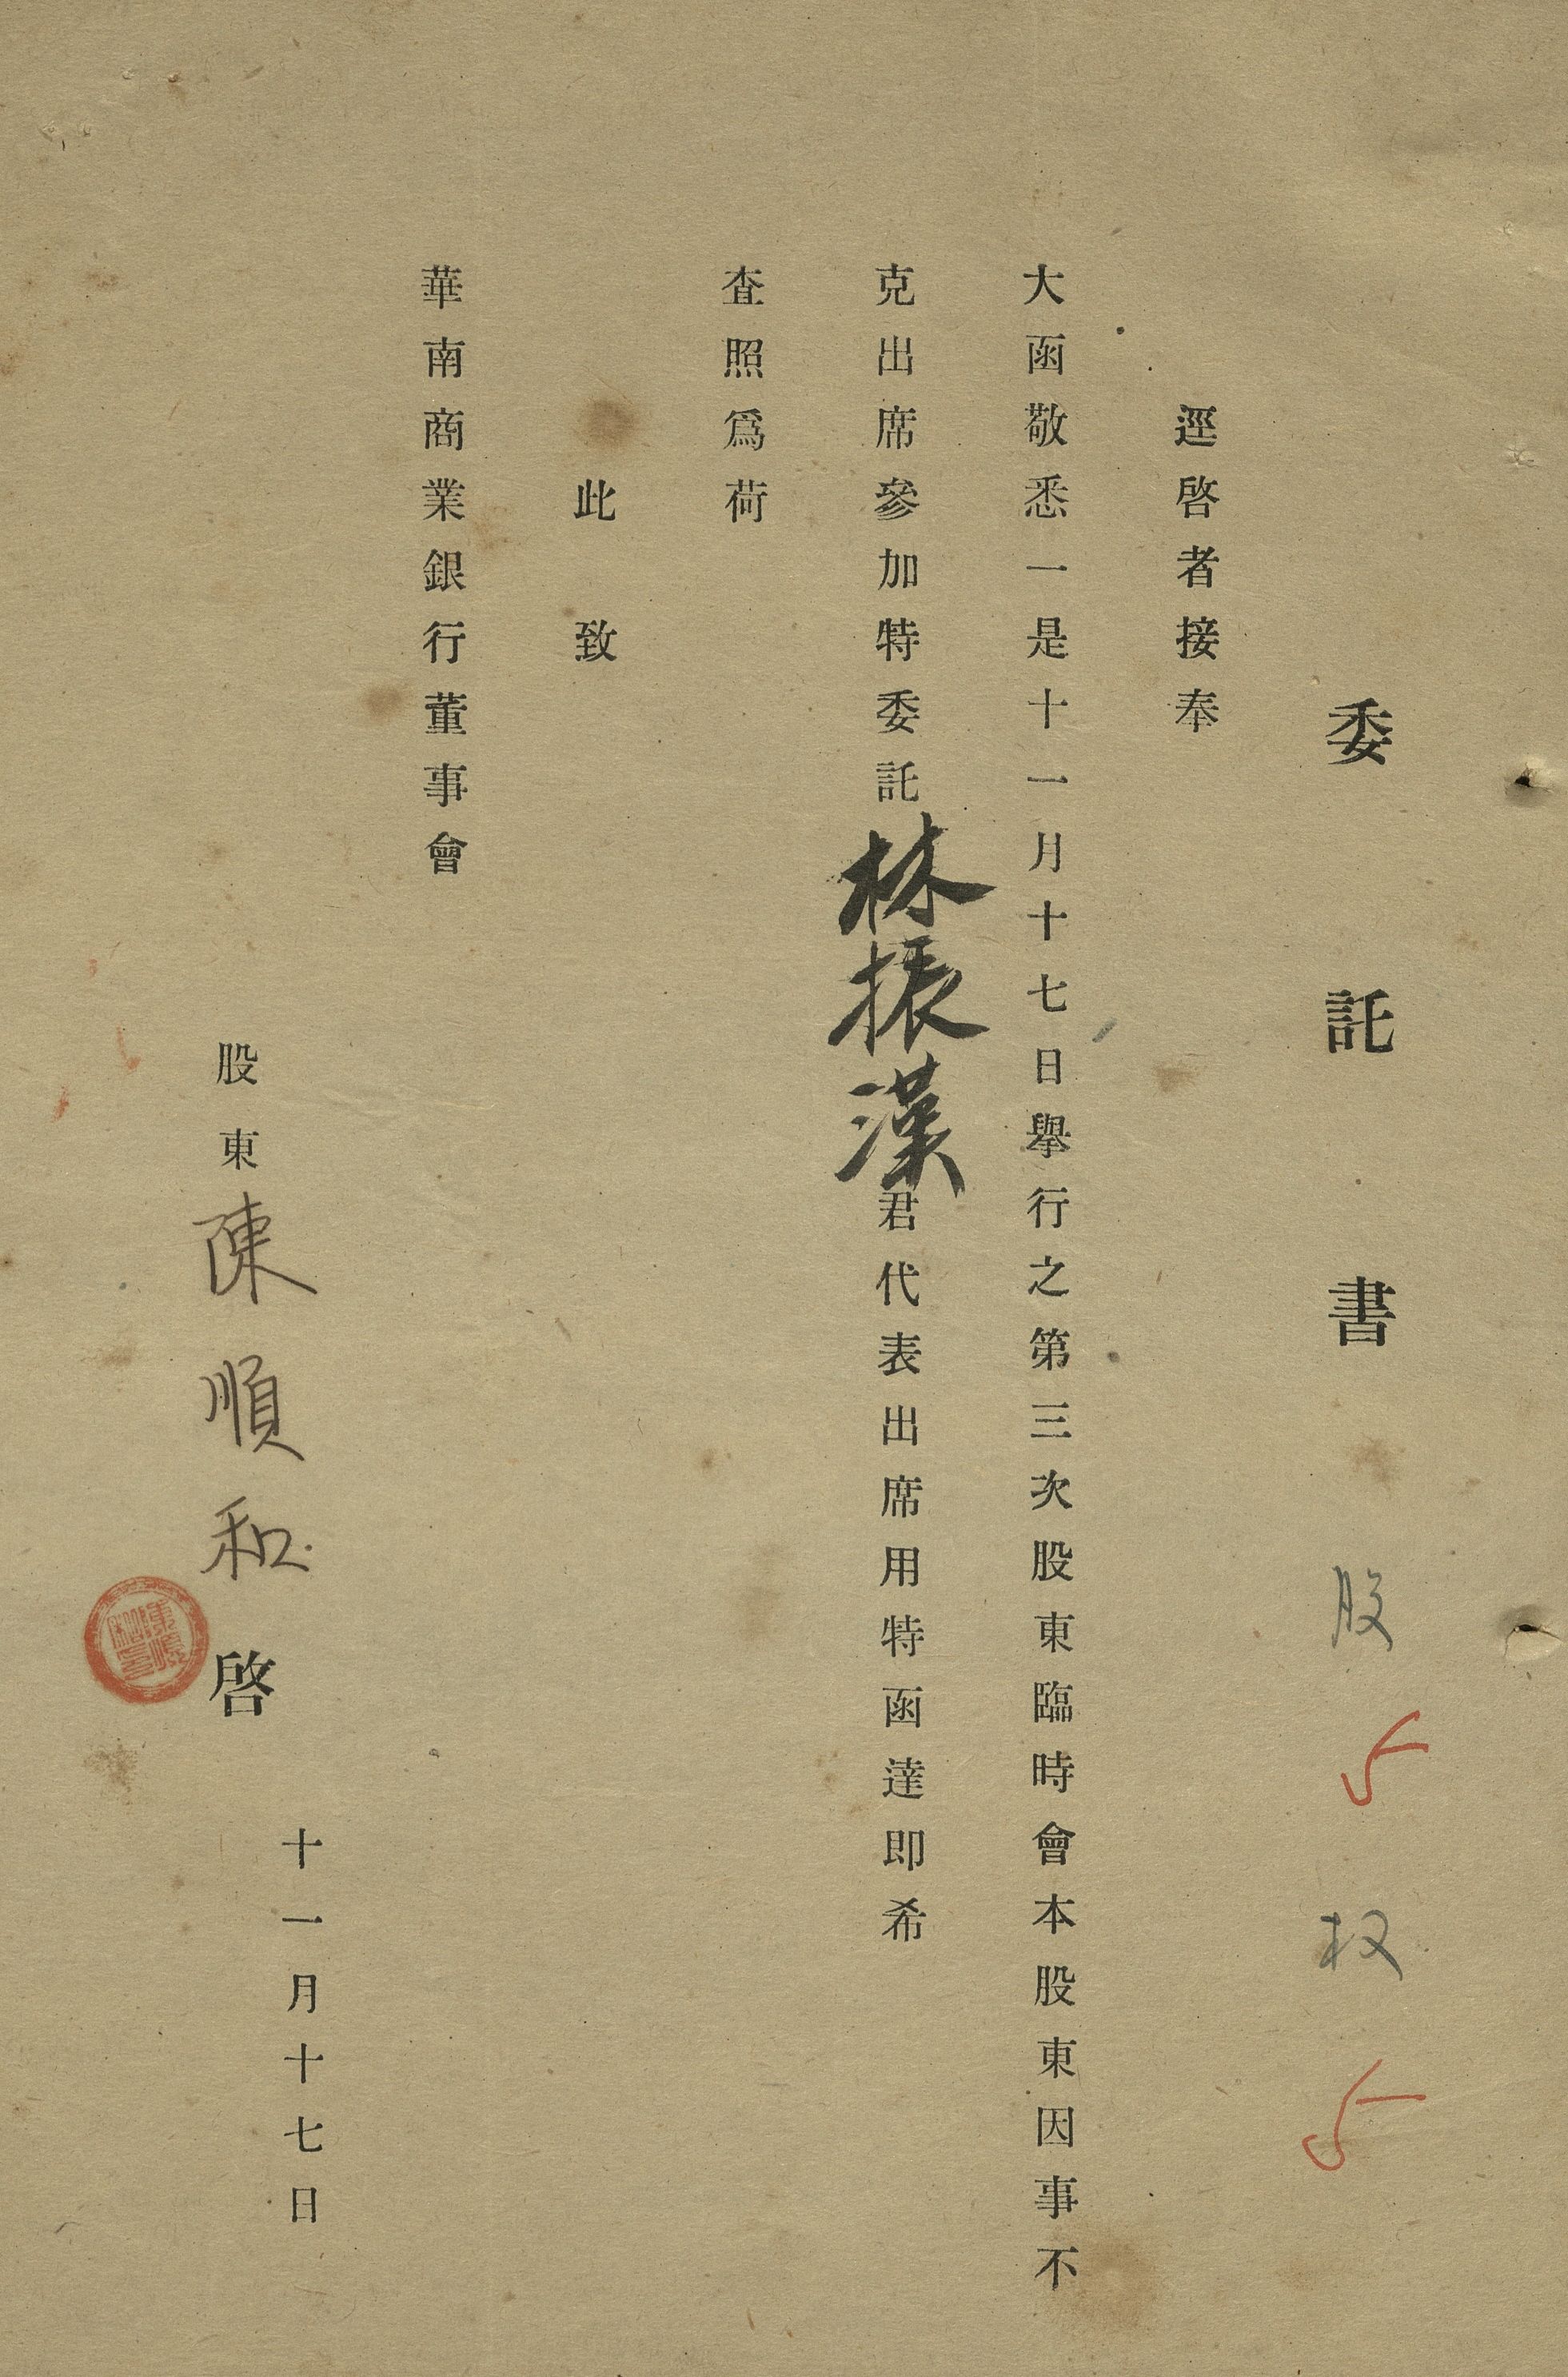 委託書
股 5 权 5
逕啓者接奉
大函敬悉一是十一月十七日舉行之第三次股東臨時會本股東因事不
克出席參加特委託林振漢君代表出席用特函達即希
查照爲荷
此致
華南商業銀行董事會
股東陳順和啓
十一月十七日